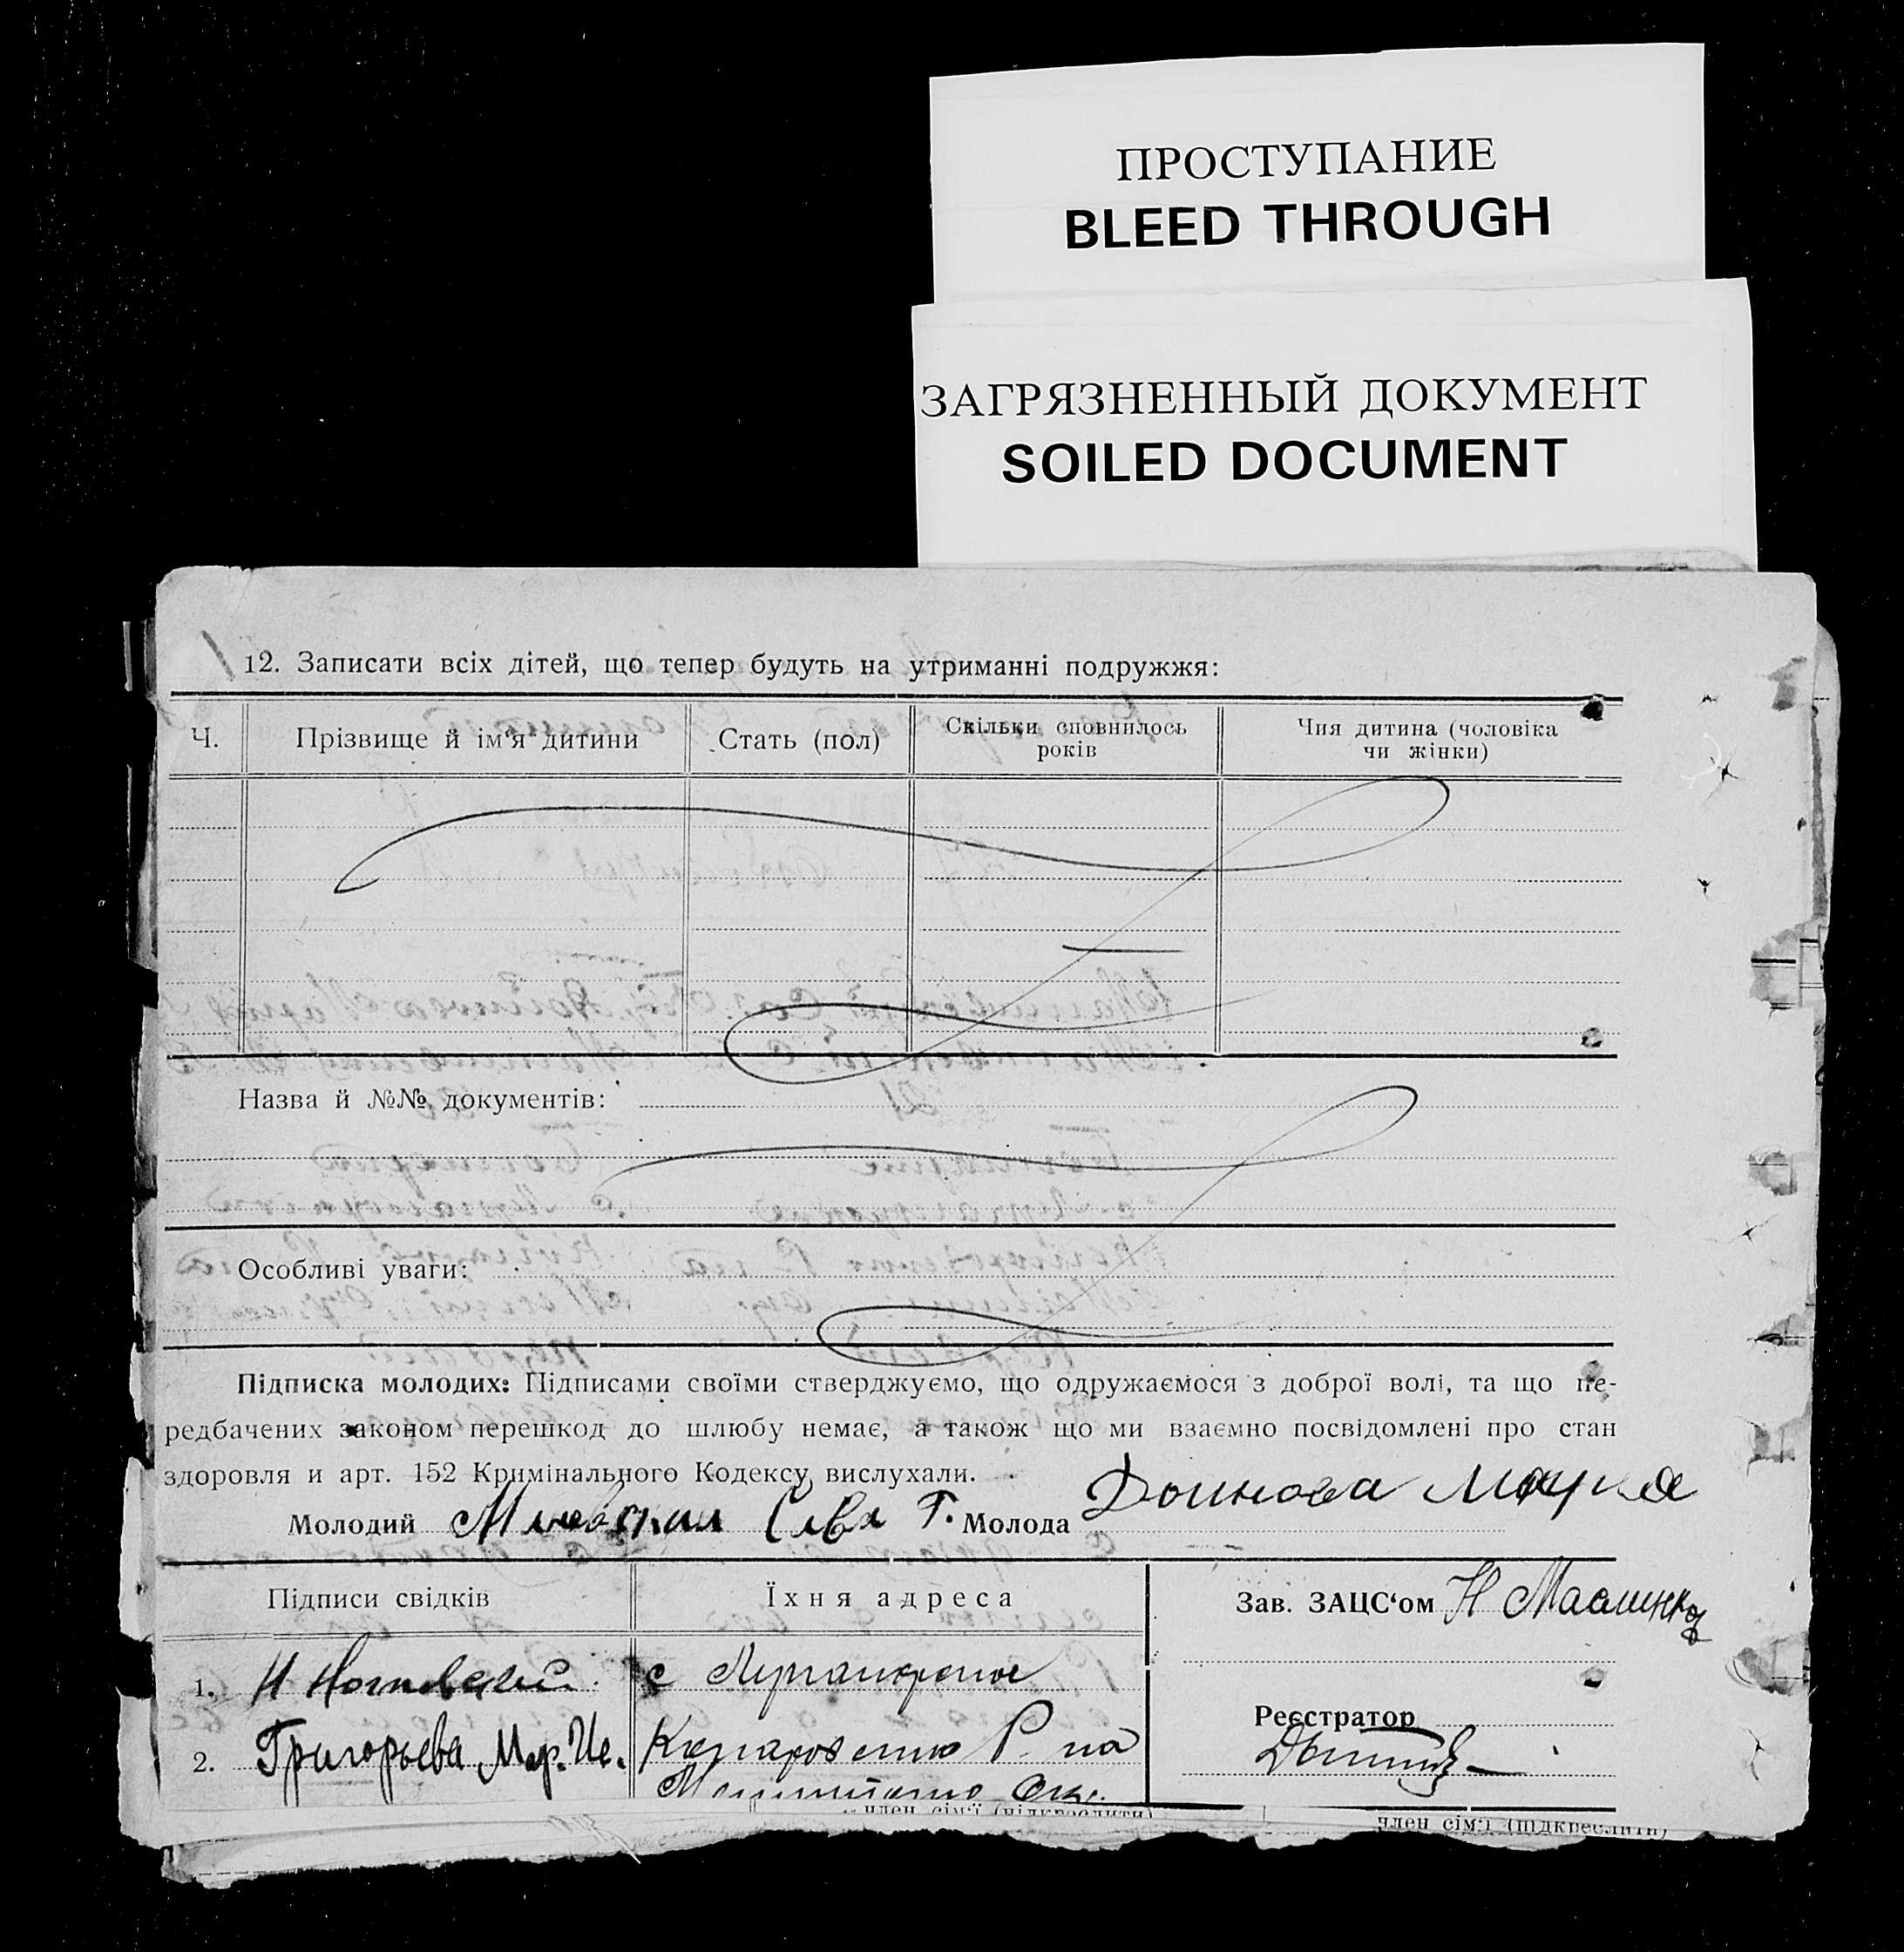 ПРОСТУПАНИЕ
BLEED THROUGH
ЗАГРЯЗНЕННЫЙ ДОКУМЕНТ
SOILED DOCUMENT
12. Записати всіх дітей, що тепер будуть на утриманні подружжя:
Ч. Прізвище й ім'я дитини Стать (пол) Скільки сповнилось років Чия дитина (чоловіка чи жінки)
Назва й №№ документів:
Особливі уваги:
Підписка молодих: Підписами своїми стверджуємо, що одружаємося з доброї волі, та що пе-
редбачених законом перешкод до шлюбу немає, а також що ми взаємно посвідомлені про стан
здоровля и арт. 152 Кримінального Кодексу вислухали.
Молодий Г. Молода Доинова Мария
Підписи свідків Їхня адреса Зав. ЗАЦС'ом Н
1. Н с
Реєстратор
2. Григорьева Мар. Р. на
член сім'ї (підкреслити)
член сім'ї (підкреслити)